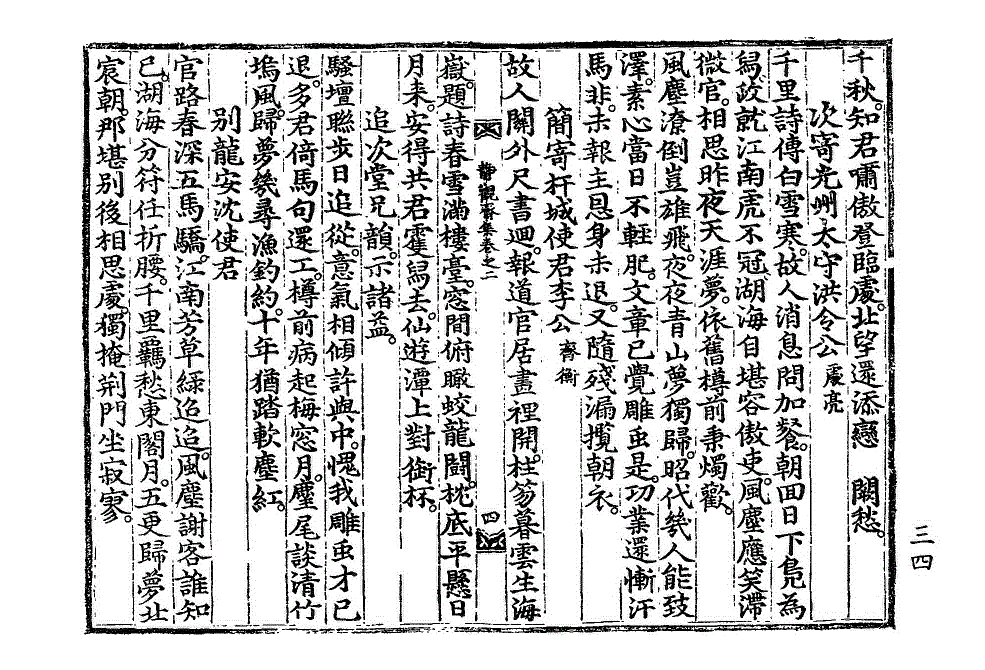 千秋。知君嘯傲登臨處。北望還添戀　闕愁。
次寄光州太守洪令公 處亮
千里詩傳白雪寒。故人消息問加餐。朝回日下鳧為
舄。政就江南虎不冠。湖海自堪容傲吏。風塵應笑滯
微官。相思昨夜天涯夢。依舊樽前秉燭歡。
風塵潦倒豈雄飛。夜夜青山夢獨歸。昭代幾人能致
澤。素心當日不輕肥。文章已覺雕虫是。功業還慚汗
馬非。未報主恩身未退。又隨殘漏攬朝衣。
簡寄杆城使君李公 齊衡
故人關外尺書迴。報道官居畫裡開。柱笏暮雲生海
靜觀齋集卷之二
四
嶽。題詩春雪滿樓臺。窓間俯瞰蛟龍鬪。枕底平懸日
月來。安得共君䨥舄去。仙遊潭上對銜杯。
追次堂兄韻。示諸益。
騷壇聯步日追從。意氣相傾許與中。愧我雕虫才已
退。多君倚馬句還工。樽前病起梅窓月。麈尾談清竹
塢風。歸夢幾尋漁釣約。十年猶踏軟塵紅。
別龍安沈使君
官路春深五馬驕。江南芳草綠迢迢。風塵謝客誰知
已。湖海分符任折腰。千里羈愁東閣月。五更歸夢北
宸朝。那堪別後相思處。獨掩荊門坐寂寥。
三四